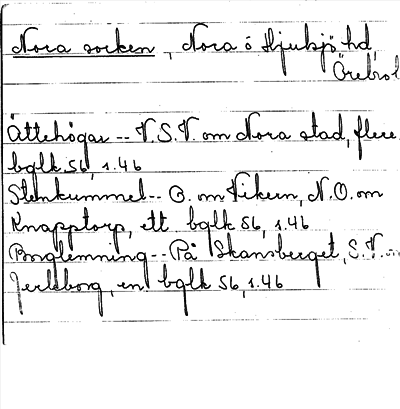 Nora socken, Nora ö Hjulsjö hd
Örebrol
Ättehögar -- V.S.V. om Nora stad, flere
bglk 56, 1.46
Stenkummel -- O. om Vikern, N.O. om
Knapptorp, ett bglk 56, 1.46
Borglemning -- På Skansberget, S.V.
Jerleborg, en bglk 56, 1.46